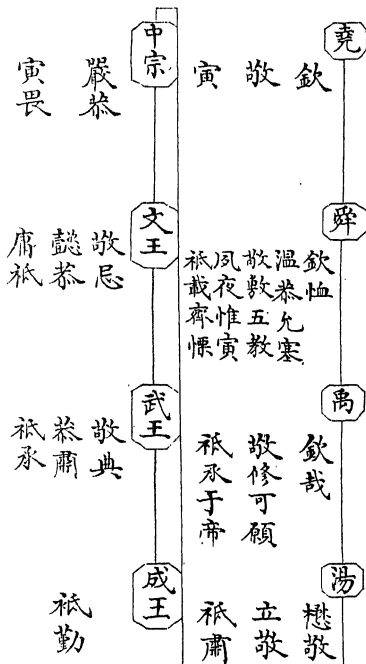 堯
欽
敬
寅
舜
欽恤
溫恭允塞
敬敷五教
夙夜惟寅
祗載齊慄
禹
欽哉
敬修可願
祗承于帝
湯
懋敬
立敬
祗肅
中宗
嚴恭
寅畏
文王
敬忌
懿恭
庸祗
武王
敬典
恭肅
祗承
成王
祗勤